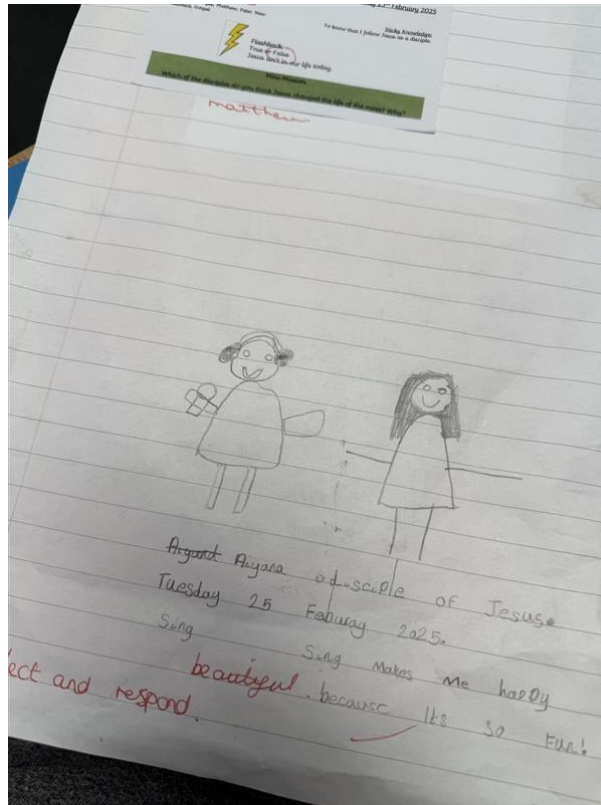 February 2025
Matthew, Peter, New
Gospel
Sticky Knowledge:
To know that I follow Jesus as a disciple.
Flashback
True or False
Jesus isn't in our life today.
Mini-Mission
Which of the disciples do you think Jesus changed the life of the most? Why?
matthew
Aiyana a disciple of Jesus.
Tuesday 25 Feburay 2025.
Sing Sing Makes Me happy
beautiful. because Its so Fun!
lect and respond.